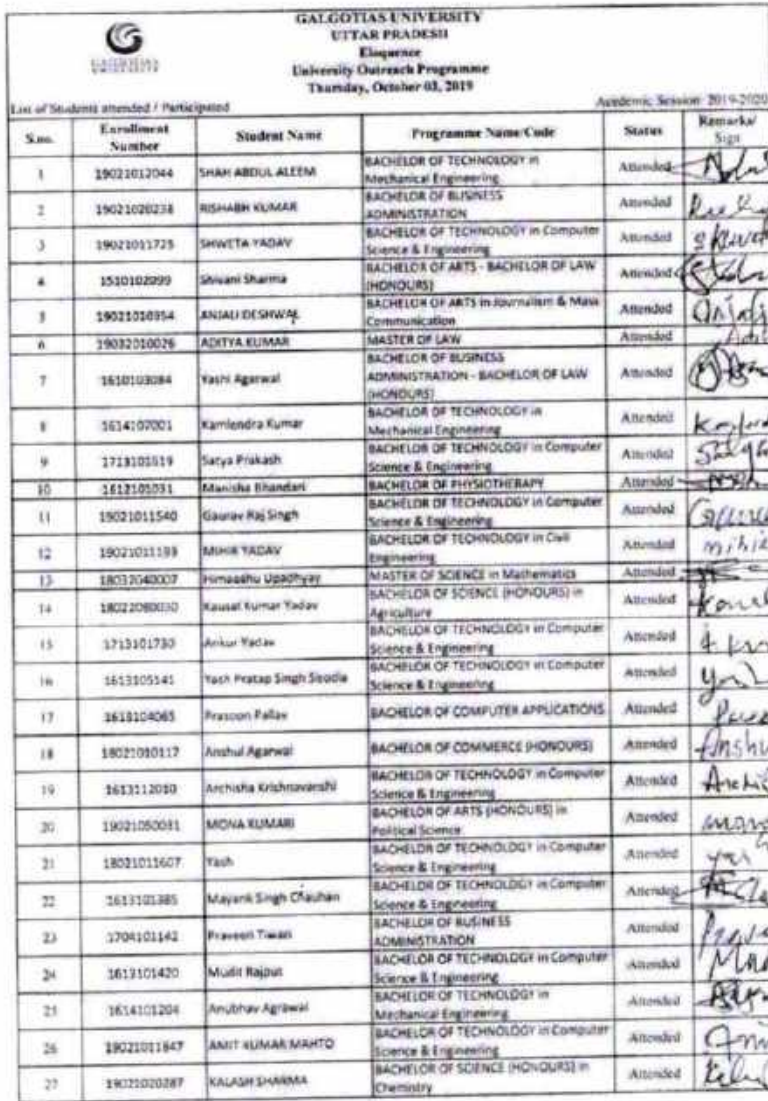 GALGOTIAS UNIVERSITY
UTTAR PRADESH
Eloquence
University Outreach Programme
Thursday, October 03, 2019
List of Students attended / Participated Academic Session 2019-2020
S.no. Enrollment Number Student Name Programme Name/Code Status Remarks/ Sign
1 19021012044 SHAH ABDUL ALEEM BACHELOR OF TECHNOLOGY in Mechanical Engineering Attended
2 19021020238 RISHABH KUMAR BACHELOR OF BUSINESS ADMINISTRATION Attended
3 19021011725 SHWETA YADAV BACHELOR OF TECHNOLOGY in Computer Science & Engineering Attended
4 1510102099 Shivani Sharma BACHELOR OF ARTS - BACHELOR OF LAW (HONOURS) Attended
5 ANJALI DESHWAL BACHELOR OF ARTS in Journalism & Mass Communication Attended Anjali
6 19032010026 ADITYA KUMAR MASTER OF LAW Attended
7 1610103084 Yashi Agarwal BACHELOR OF BUSINESS ADMINISTRATION - BACHELOR OF LAW (HONOURS) Attended
8 1614107001 Kamlendra Kumar BACHELOR OF TECHNOLOGY in Mechanical Engineering Attended
9 1713101519 Satya Prakash BACHELOR OF TECHNOLOGY in Computer Science & Engineering Attended
10 1612105031 Manisha Bhandari BACHELOR OF PHYSIOTHERAPY Attended
11 19021011540 Gaurav Raj Singh BACHELOR OF TECHNOLOGY in Computer Science & Engineering Attended
12 19021011193 MIHIR YADAV BACHELOR OF TECHNOLOGY in Civil Engineering Attended
13 18032040007 Himanshu Upadhyay MASTER OF SCIENCE in Mathematics Attended
14 18022080030 Kausal Kumar Yadav BACHELOR OF SCIENCE (HONOURS) in Agriculture Attended
15 1713101730 Ankur Yadav BACHELOR OF TECHNOLOGY in Computer Science & Engineering Attended
16 1613105141 Yash Pratap Singh Sisodia BACHELOR OF TECHNOLOGY in Computer Science & Engineering Attended
17 1613104065 Prasoon Pallav BACHELOR OF COMPUTER APPLICATIONS Attended
18 18021010117 Anshul Agarwal BACHELOR OF COMMERCE (HONOURS) Attended Anshu
19 1613112010 Archisha Krishnavanshi BACHELOR OF TECHNOLOGY in Computer Science & Engineering Attended
20 19021050031 MONA KUMARI BACHELOR OF ARTS (HONOURS) in Political Science Attended
21 18021011607 Yash BACHELOR OF TECHNOLOGY in Computer Science & Engineering Attended
22 1613101385 Mayank Singh Chauhan BACHELOR OF TECHNOLOGY in Computer Science & Engineering Attended
23 1704101142 Praveen Tiwari BACHELOR OF BUSINESS ADMINISTRATION Attended
24 1613101420 Mudit Rajput BACHELOR OF TECHNOLOGY in Computer Science & Engineering Attended
25 1614101204 Anubhav Agrawal BACHELOR OF TECHNOLOGY in Mechanical Engineering Attended
26 19021011847 AMIT KUMAR MAHTO BACHELOR OF TECHNOLOGY in Computer Science & Engineering Attended
27 19021020287 KALASH SHARMA BACHELOR OF SCIENCE (HONOURS) in Chemistry Attended